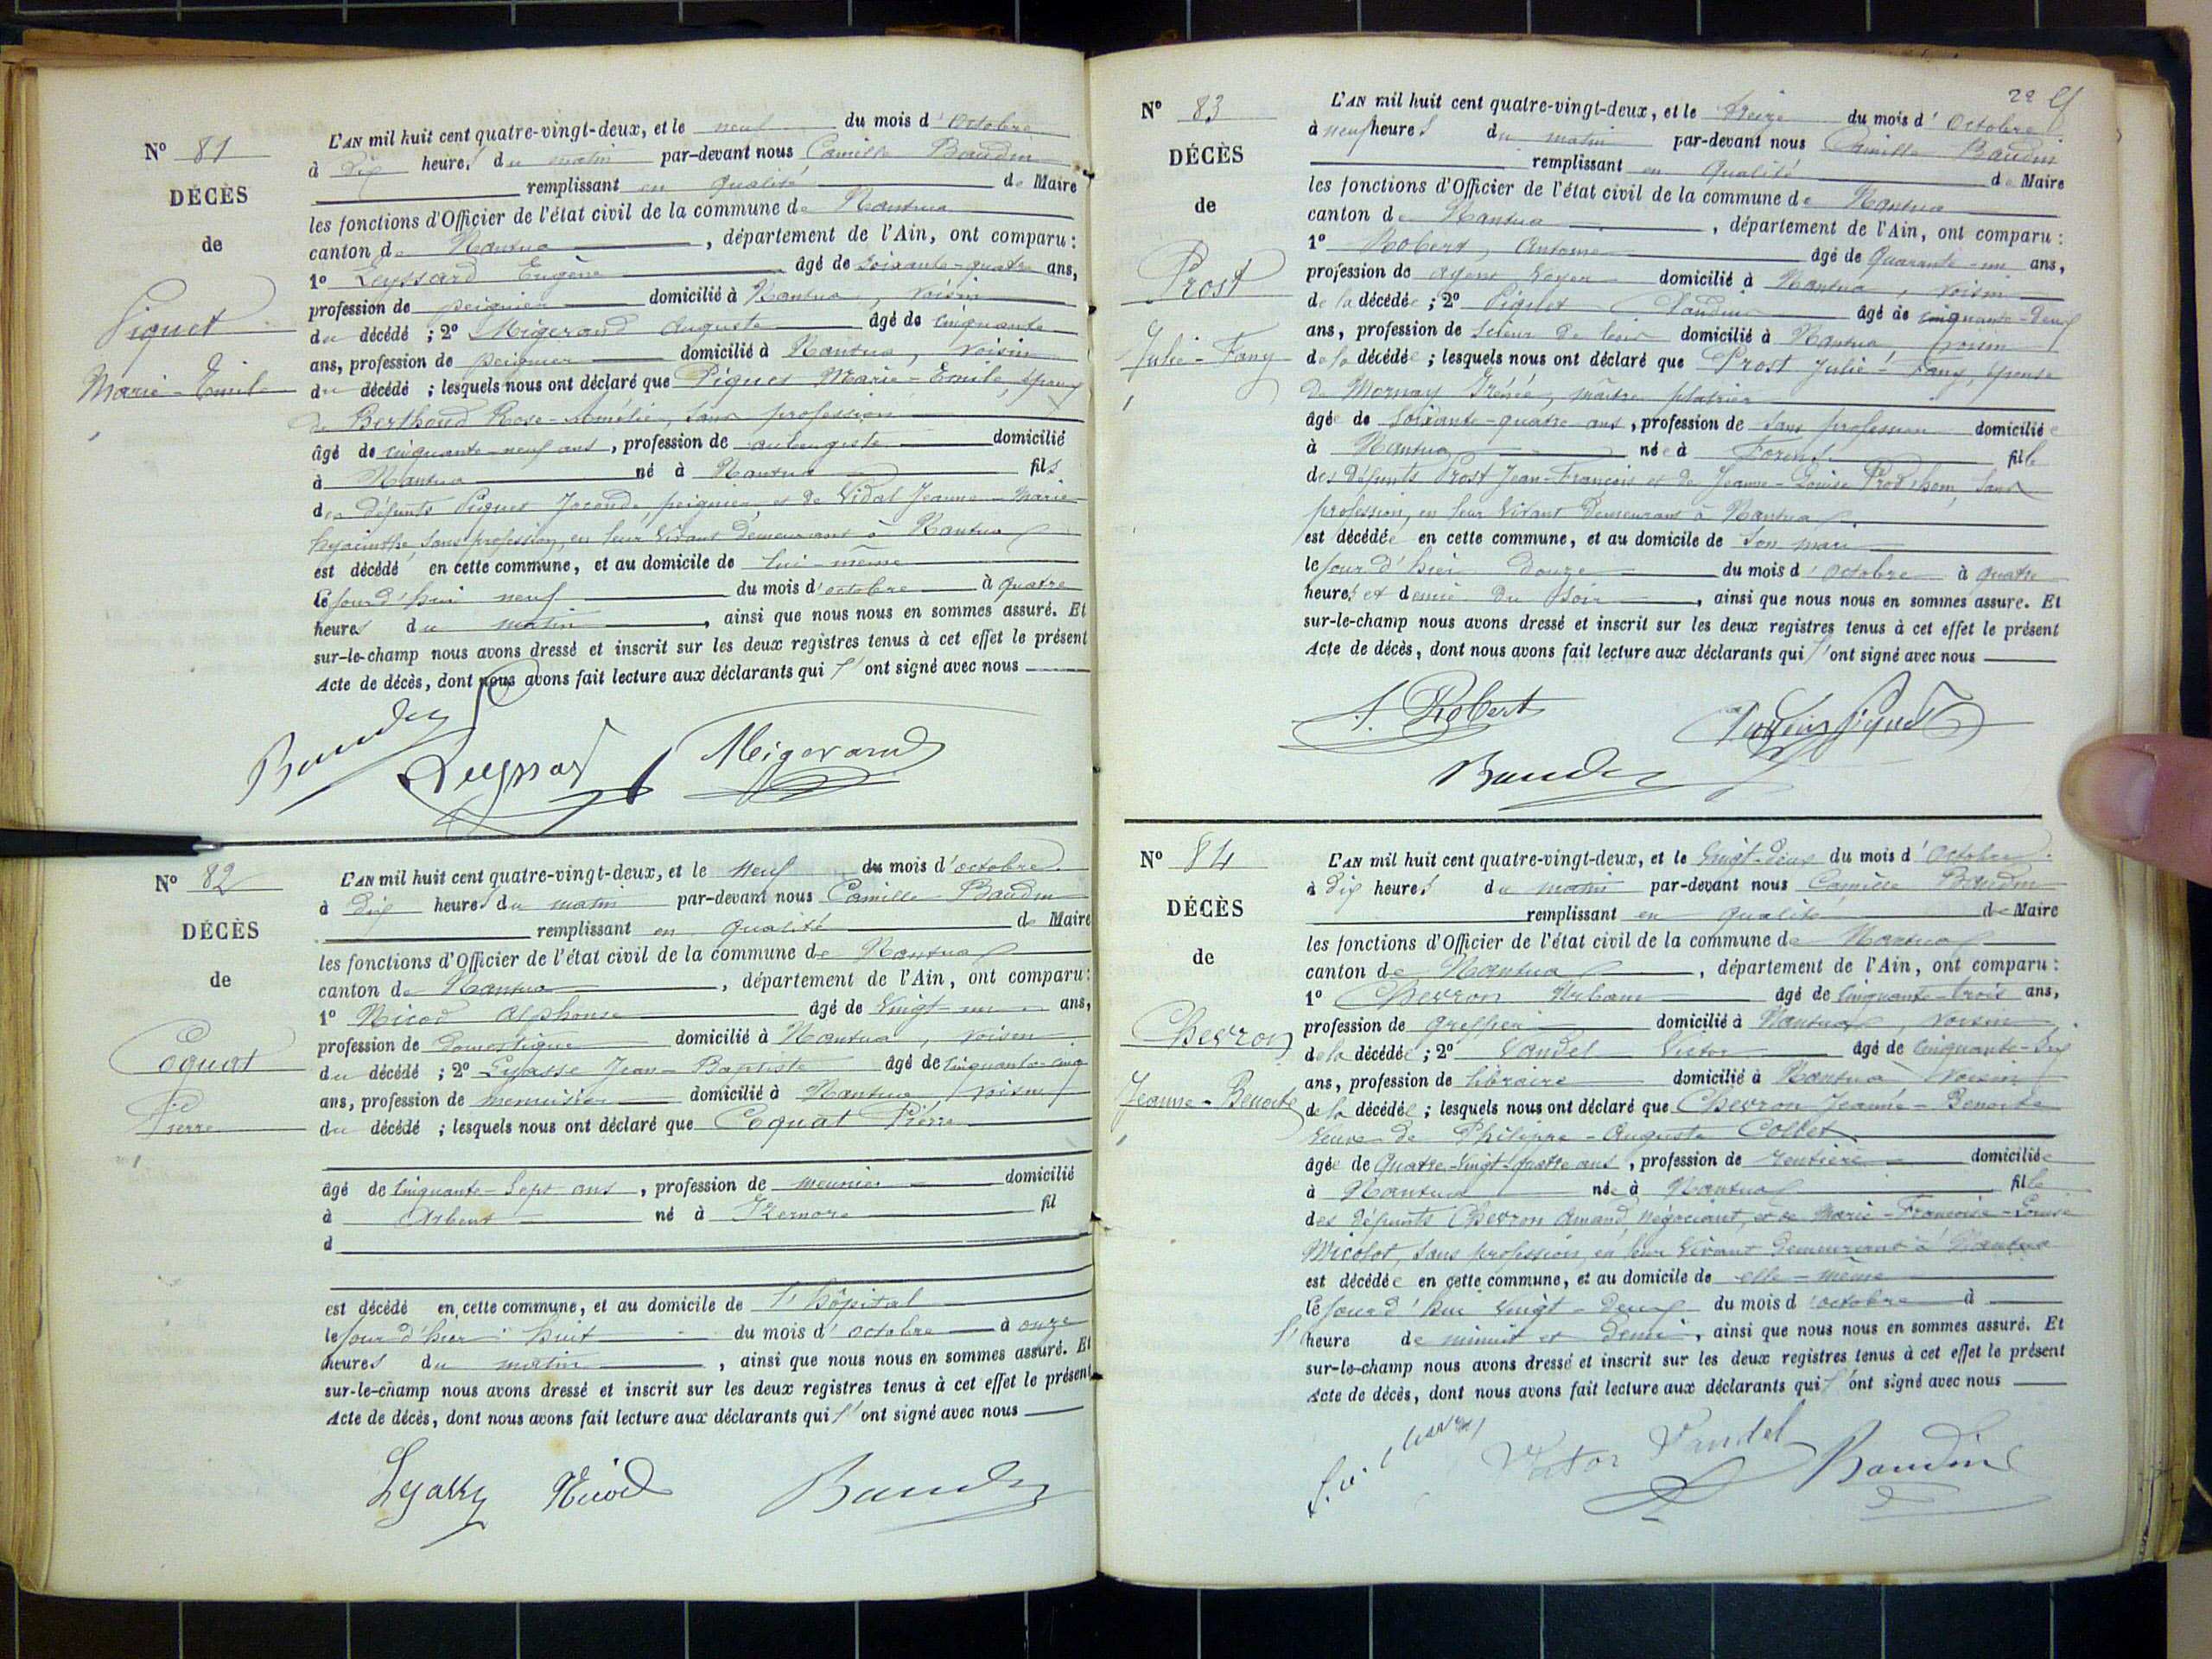 N° 81
DÉCÈS
de
Piquet
Marie-Emile
L'AN mil huit cent quatre-vingt-deux, et le neuf du mois d'Octobre
à Dix heures du matin par-devant nous Camille Baudin
remplissant en qualité de Maire
les fonctions d'Officier de l'état civil de la commune de Nantua
canton de Nantua, département de l'Ain, ont comparu :
1° Leyssard Eugène âgé de soixante-quatre ans,
profession de peignier domicilié à Nantua, voisin
du décédé ; 2° Migerand Auguste âgé de cinquante
ans, profession de peignier domicilié à Nantua, voisin
du décédé ; lesquels nous ont déclaré que Piquet Marie-Emile, époux
de Berthoud Rose-Amélie, sans profession
âgé de cinquante-neuf ans, profession de aubergiste domicilié
à Nantua né à Nantua fils
des défunts Piquet Joconde, peignier, et de Vidal Jeanne-Marie-
hyacinthe, sans profession, en leur vivant demeurant à Nantua
est décédé en cette commune, et au domicile de lui-même
le jour d'hui neuf du mois d'octobre à quatre
heures du matin, ainsi que nous nous en sommes assuré. Et
sur-le-champ nous avons dressé et inscrit sur les deux registres tenus à cet effet le présent
Acte de décès, dont nous avons fait lecture aux déclarants qui l'ont signé avec nous
Baudin Leyssard Migerand
N° 82
DÉCÈS
de
Coquat
Pierre
L'AN mil huit cent quatre-vingt-deux, et le neuf du mois d'octobre
à dix heures du matin par-devant nous Camille Baudin
remplissant en qualité de Maire
les fonctions d'Officier de l'état civil de la commune de Nantua
canton de Nantua, département de l'Ain, ont comparu :
1° Nicod Alphonse âgé de vingt-un ans,
profession de domestique domicilié à Nantua, voisin
du décédé ; 2° Lyasse Jean-Baptiste âgé de cinquante-cinq
ans, profession de menuisier domicilié à Nantua, voisin
du décédé ; lesquels nous ont déclaré que Coquat Pierre
âgé de cinquante-sept ans, profession de meunier domicilié
à Arbent né à Izernore fil
d
est décédé en cette commune, et au domicile de l'hôpital
le jour d'hier huit du mois d'octobre à onze
heures du matin, ainsi que nous nous en sommes assuré. Et
sur-le-champ nous avons dressé et inscrit sur les deux registres tenus à cet effet le présent
Acte de décès, dont nous avons fait lecture aux déclarants qui l'ont signé avec nous
Nicod Baudin
22
N° 83
DÉCÈS
de
Prost
Julie-Fany
L'AN mil huit cent quatre-vingt-deux, et le treize du mois d'Octobre
à neuf heures du matin par-devant nous Camille Baudin
remplissant en qualité de Maire
les fonctions d'Officier de l'état civil de la commune de Nantua
canton de Nantua, département de l'Ain, ont comparu :
1° Robert, Antoine âgé de Quarante-un ans,
profession de agent voyer domicilié à Nantua, voisin
de la décédée ; 2° Piquet Claudius âgé de cinquante-deux
ans, profession de scieur de bois domicilié à Nantua voisin
de la décédée ; lesquels nous ont déclaré que Prost Julie-Fany, épouse
de Mornay Irénée, maître plâtrier
âgée de soixante-quatre ans, profession de sans profession domiciliée
à Nantua née à Forens fille
des défunts Prost Jean-François et de Jeanne-Louise Prodhom, sans
profession, en leur vivant demeurant à Nantua
est décédée en cette commune, et au domicile de son mari
le jour d'hier douze du mois d'octobre à quatre
heures et demie du soir, ainsi que nous nous en sommes assuré. Et
sur-le-champ nous avons dressé et inscrit sur les deux registres tenus à cet effet le présent
Acte de décès, dont nous avons fait lecture aux déclarants qui l'ont signé avec nous
A. Robert Claudius Piquet
Baudin
N° 84
DÉCÈS
de
Chevron
Jeanne-Benoite
L'AN mil huit cent quatre-vingt-deux, et le vingt-deux du mois d'Octobre
à dix heures du matin par-devant nous Camille Baudin
remplissant en qualité de Maire
les fonctions d'Officier de l'état civil de la commune de Nantua
canton de Nantua, département de l'Ain, ont comparu :
1° Chevron Urbain âgé de cinquante-trois ans,
profession de greffier domicilié à Nantua, voisin
de la décédée ; 2° Vandel Victor âgé de cinquante-six
ans, profession de libraire domicilié à Nantua voisin
de la décédée ; lesquels nous ont déclaré que Chevron Jeanne-Benoite
veuve de Philippe-Auguste Collet
âgée de Quatre-vingt-quatre ans, profession de rentière domiciliée
à Nantua née à Nantua fille
des défunts Chevron Amand, négociant, et de Marie-Françoise-Louise
Micolot, sans profession, en leur vivant demeurant à Nantua
est décédée en cette commune, et au domicile de elle-même
le jour d'hui vingt-deux du mois d'octobre à
l'heure de minuit et demi, ainsi que nous nous en sommes assuré. Et
sur-le-champ nous avons dressé et inscrit sur les deux registres tenus à cet effet le présent
Acte de décès, dont nous avons fait lecture aux déclarants qui l'ont signé avec nous
Chevron Victor Vandel Baudin